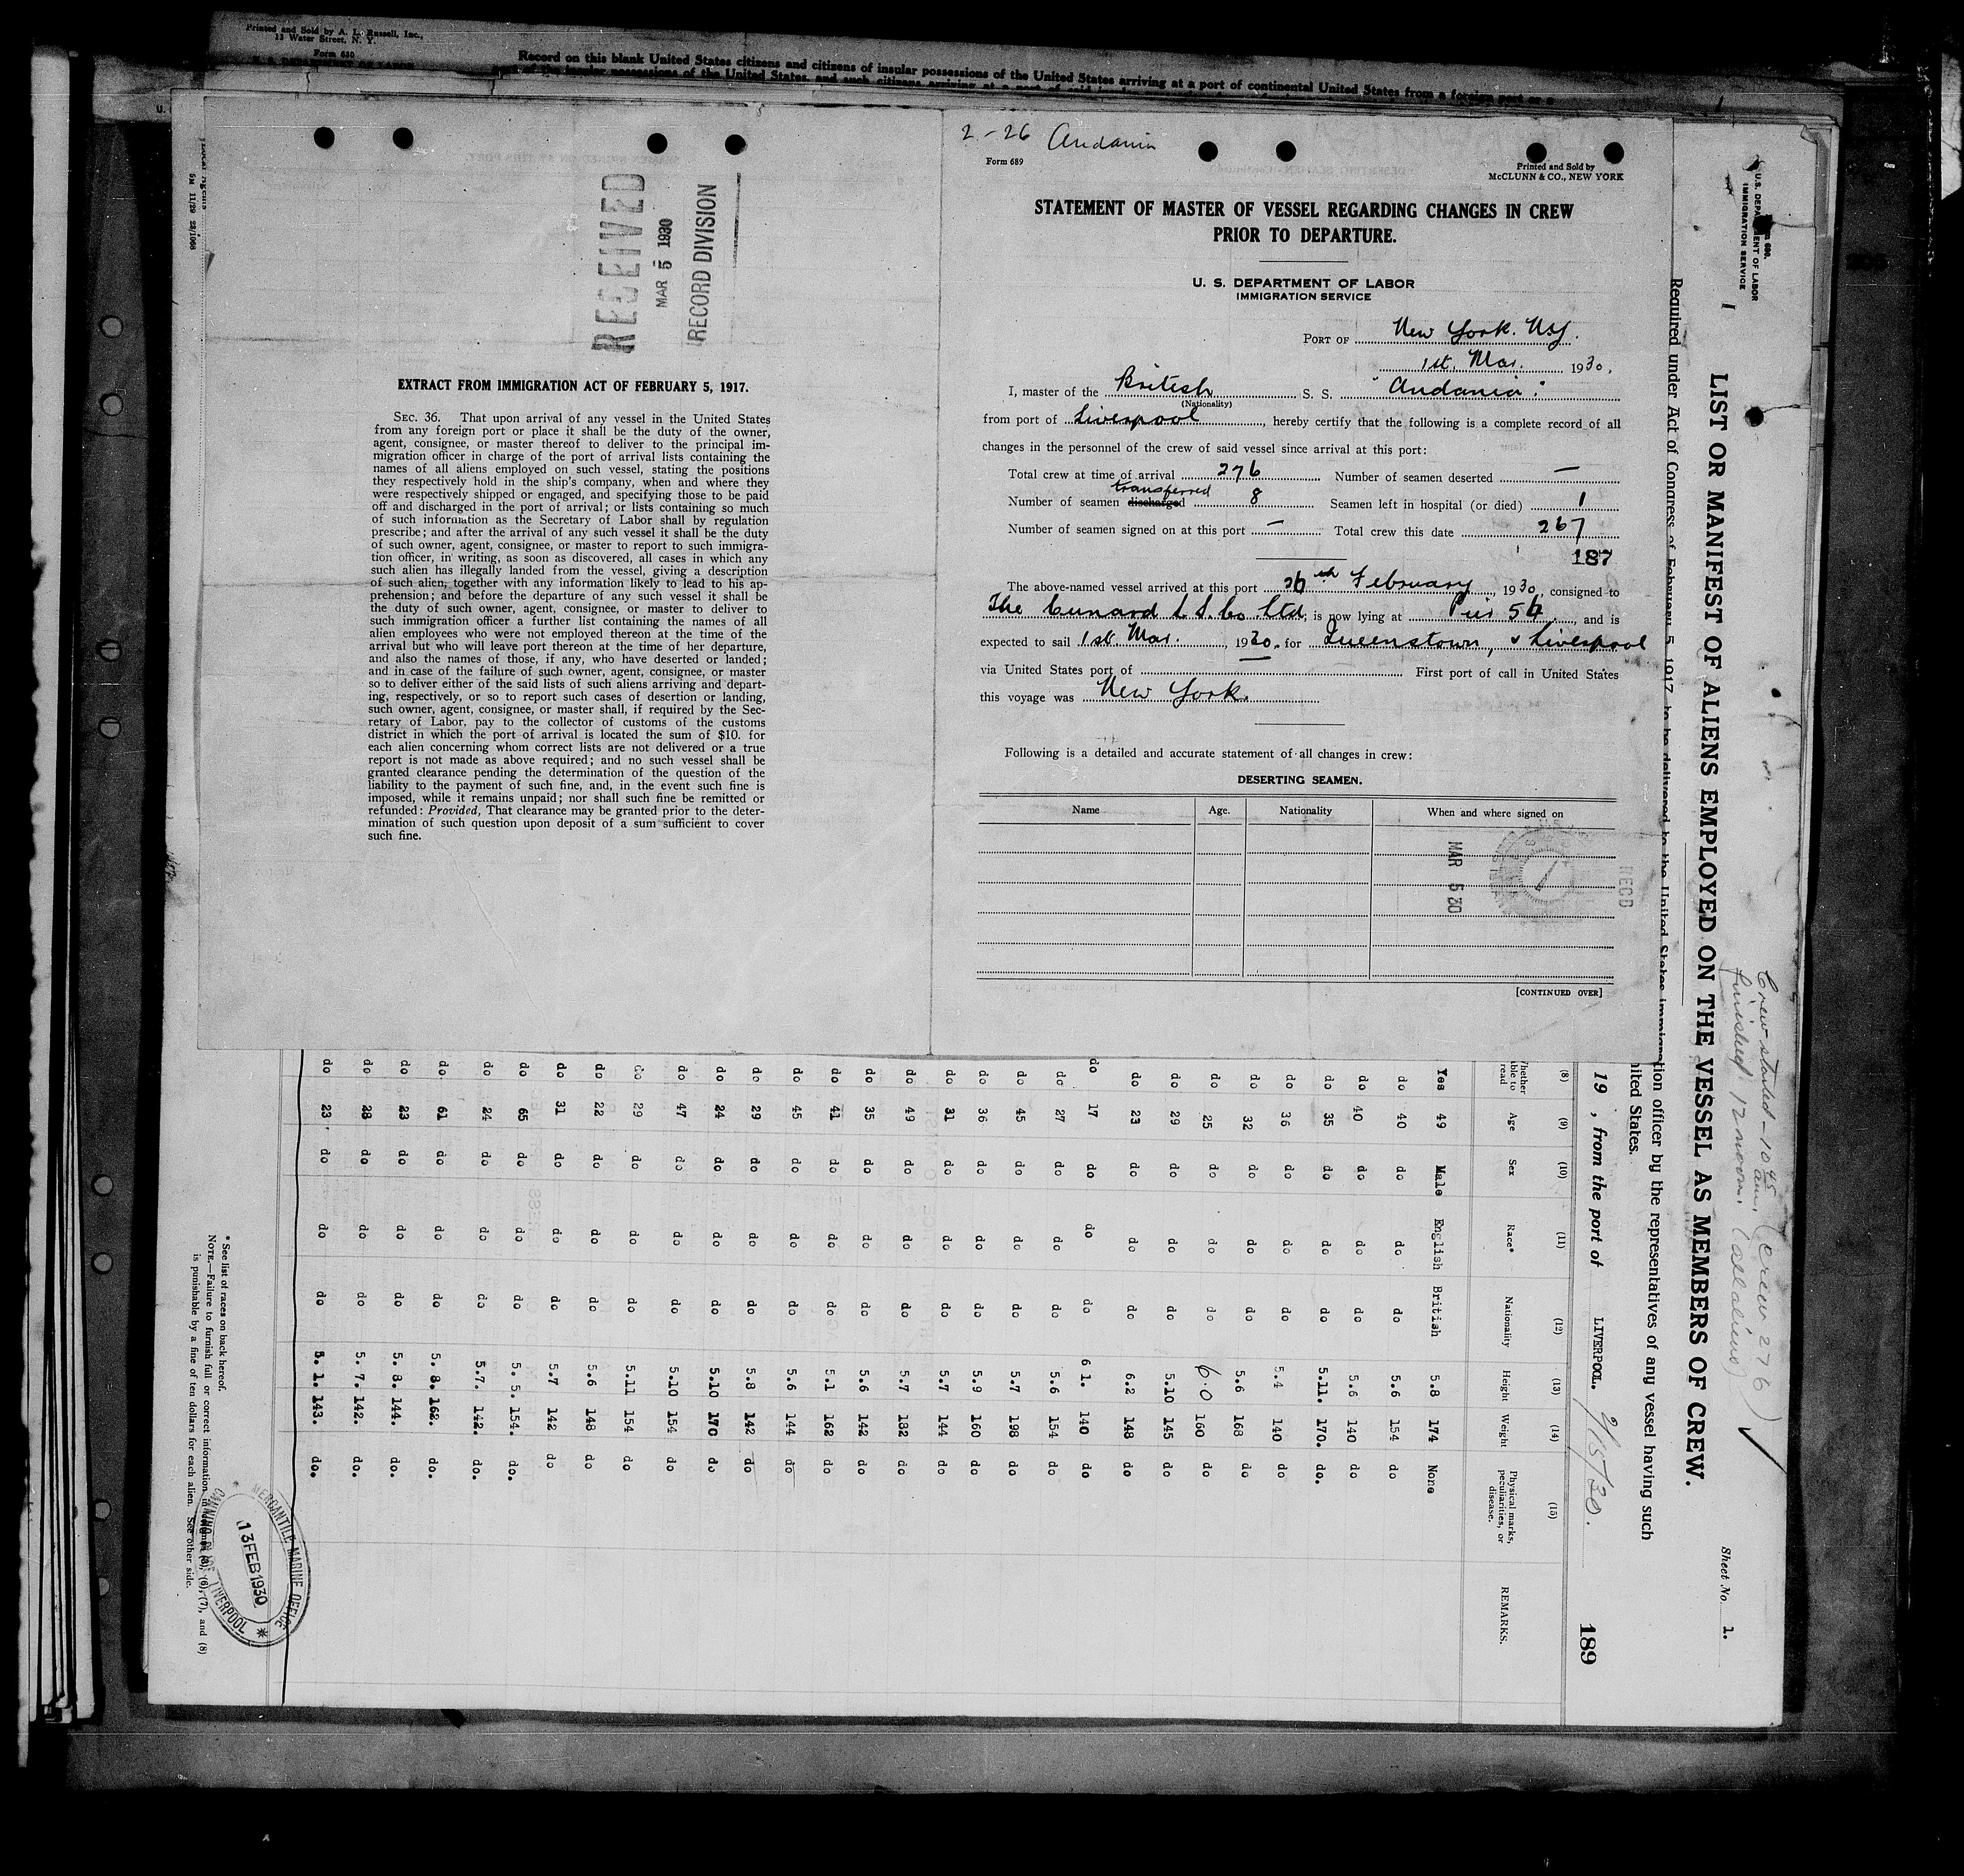 Printed and Sold by A. L. Russell, Inc.,
13 Water Street, N. Y.
Form 630
U. S. DEPARTMENT OF LABOR
Record on this blank United States citizens and citizens of insular possessions of the United States arriving at a port of continental United States from a foreign port or a
part of the insular possessions of the United States, and such citizens arriving at a port of said insular
5M 11/29 22/1068
RECEIVED
MAR 5 1930
RECORD DIVISION
EXTRACT FROM IMMIGRATION ACT OF FEBRUARY 5, 1917.
SEC. 36. That upon arrival of any vessel in the United States
from any foreign port or place it shall be the duty of the owner,
agent, consignee, or master thereof to deliver to the principal im-
migration officer in charge of the port of arrival lists containing the
names of all aliens employed on such vessel, stating the positions
they respectively hold in the ship's company, when and where they
were respectively shipped or engaged, and specifying those to be paid
off and discharged in the port of arrival; or lists containing so much
of such information as the Secretary of Labor shall by regulation
prescribe; and after the arrival of any such vessel it shall be the duty
of such owner, agent, consignee, or master to report to such immigra-
tion officer, in writing, as soon as discovered, all cases in which any
such alien has illegally landed from the vessel, giving a description
of such alien, together with any information likely to lead to his ap-
prehension; and before the departure of any such vessel it shall be
the duty of such owner, agent, consignee, or master to deliver to
such immigration officer a further list containing the names of all
alien employees who were not employed thereon at the time of the
arrival but who will leave port thereon at the time of her departure,
and also the names of those, if any, who have deserted or landed;
and in case of the failure of such owner, agent, consignee, or master
so to deliver either of the said lists of such aliens arriving and depart-
ing, respectively, or so to report such cases of desertion or landing,
such owner, agent, consignee, or master shall, if required by the Sec-
retary of Labor, pay to the collector of customs of the customs
district in which the port of arrival is located the sum of $10. for
each alien concerning whom correct lists are not delivered or a true
report is not made as above required; and no such vessel shall be
granted clearance pending the determination of the question of the
liability to the payment of such fine, and, in the event such fine is
imposed, while it remains unpaid; nor shall such fine be remitted or
refunded: Provided, That clearance may be granted prior to the deter-
mination of such question upon deposit of a sum sufficient to cover
such fine.
2-26 Andania
Form 689
Printed and Sold by
McCLUNN & CO., NEW YORK
STATEMENT OF MASTER OF VESSEL REGARDING CHANGES IN CREW
PRIOR TO DEPARTURE.
U. S. DEPARTMENT OF LABOR
IMMIGRATION SERVICE
PORT OF New York. N.Y.
1st. Mar. 1930.
I, master of the British S. S. "Andania".
(Nationality)
from port of Liverpool, hereby certify that the following is a complete record of all
changes in the personnel of the crew of said vessel since arrival at this port:
Total crew at time of arrival 276 Number of seamen deserted —
transferred
Number of seamen discharged 8 Seamen left in hospital (or died) 1
Number of seamen signed on at this port — Total crew this date 267
187
The above-named vessel arrived at this port 26th February, 1930, consigned to
The Cunard S.S. Co. Ltd, is now lying at Pier 54, and is
expected to sail 1st. Mar. 1930. for Queenstown, & Liverpool
via United States port of First port of call in United States
this voyage was New York.
Following is a detailed and accurate statement of all changes in crew:
DESERTING SEAMEN.
Name Age. Nationality When and where signed on
MAR 5 30
REC'D
[CONTINUED OVER]
U.S. DEPARTMENT OF LABOR
IMMIGRATION SERVICE
Crew started - 10 45 am. (Crew 276)
finished 12 noon.
LIST OR MANIFEST OF ALIENS EMPLOYED ON THE VESSEL AS MEMBERS OF CREW.
Sheet No. 1.
Required under Act of Congress of February 5, 1917, to be delivered to the United States immigration officer by the representatives of any vessel having such
United States.
19 , from the port of LIVERPOOL. 2/15/30.
189
(8) (9) (10) (11) (12) (13) (14) (15)
Whether able to read Age Sex Race* Nationality Height Weight Physical marks, peculiarities, or disease. REMARKS.
Yes 49 Male English British 5.8 174 None
do 40 do do do 5.6 154 do
do 40 do do do 5.6 140 do
do 35 do do do 5.11. 170. do.
do 36 do do do 5.4 140 do
do 32 do do do 5.6 168 do
do 25 do do do 6.0 160 do
do 29 do do do 5.10 145 do
do 23 do do do 6.2 148 do
do 17 do do do 6 1. 140 do
do 27 do do do 5.6 154 do
do 45 do do do 5.7 198 do
do 36 do do do 5.9 160 do
do 31 do do do 5.7 144 do
do 49 do do do 5.7 182 do
do 35 do do do 5.6 142 do
do 41 do do do 5.1 162 do
do 45 do do do 5.6 144 do
do 29 do do do 5.8 142 do
do 24 do do do 5.10 170 do
do 47 do do do 5.10 154 do
do 29 do do do 5.11 154 do
do 22 do do do 5.6 148 do
do 31 do do do 5.7 142 do
do 65 do do do 5. 5. 154. do.
do 24 do do do 5.7. 142. do.
do 61 do do do 5. 8. 162. do.
do 23 do do do 5. 8. 144. do.
do 28 do do do 5. 7. 142. do.
do 23 do do do 5. 1. 143. do.
* See list of races on back hereof.
NOTE.—Failure to furnish full or correct information in columns (3), (6), (7), and (8)
is punishable by a fine of ten dollars for each alien. See other side.
MERCANTILE MARINE OFFICE
13 FEB 1930
CANNING PLACE LIVERPOOL